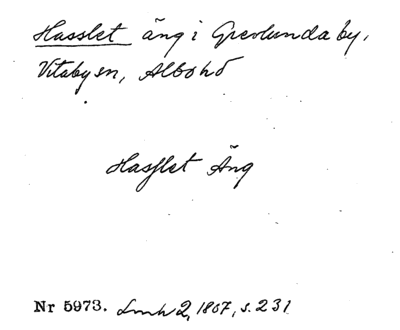 Hasslet äng i Grevlunda by,
Vitaby sn, Albo hd
Hasslet Äng
Nr 5973. Lmh 2, 1807, s. 231